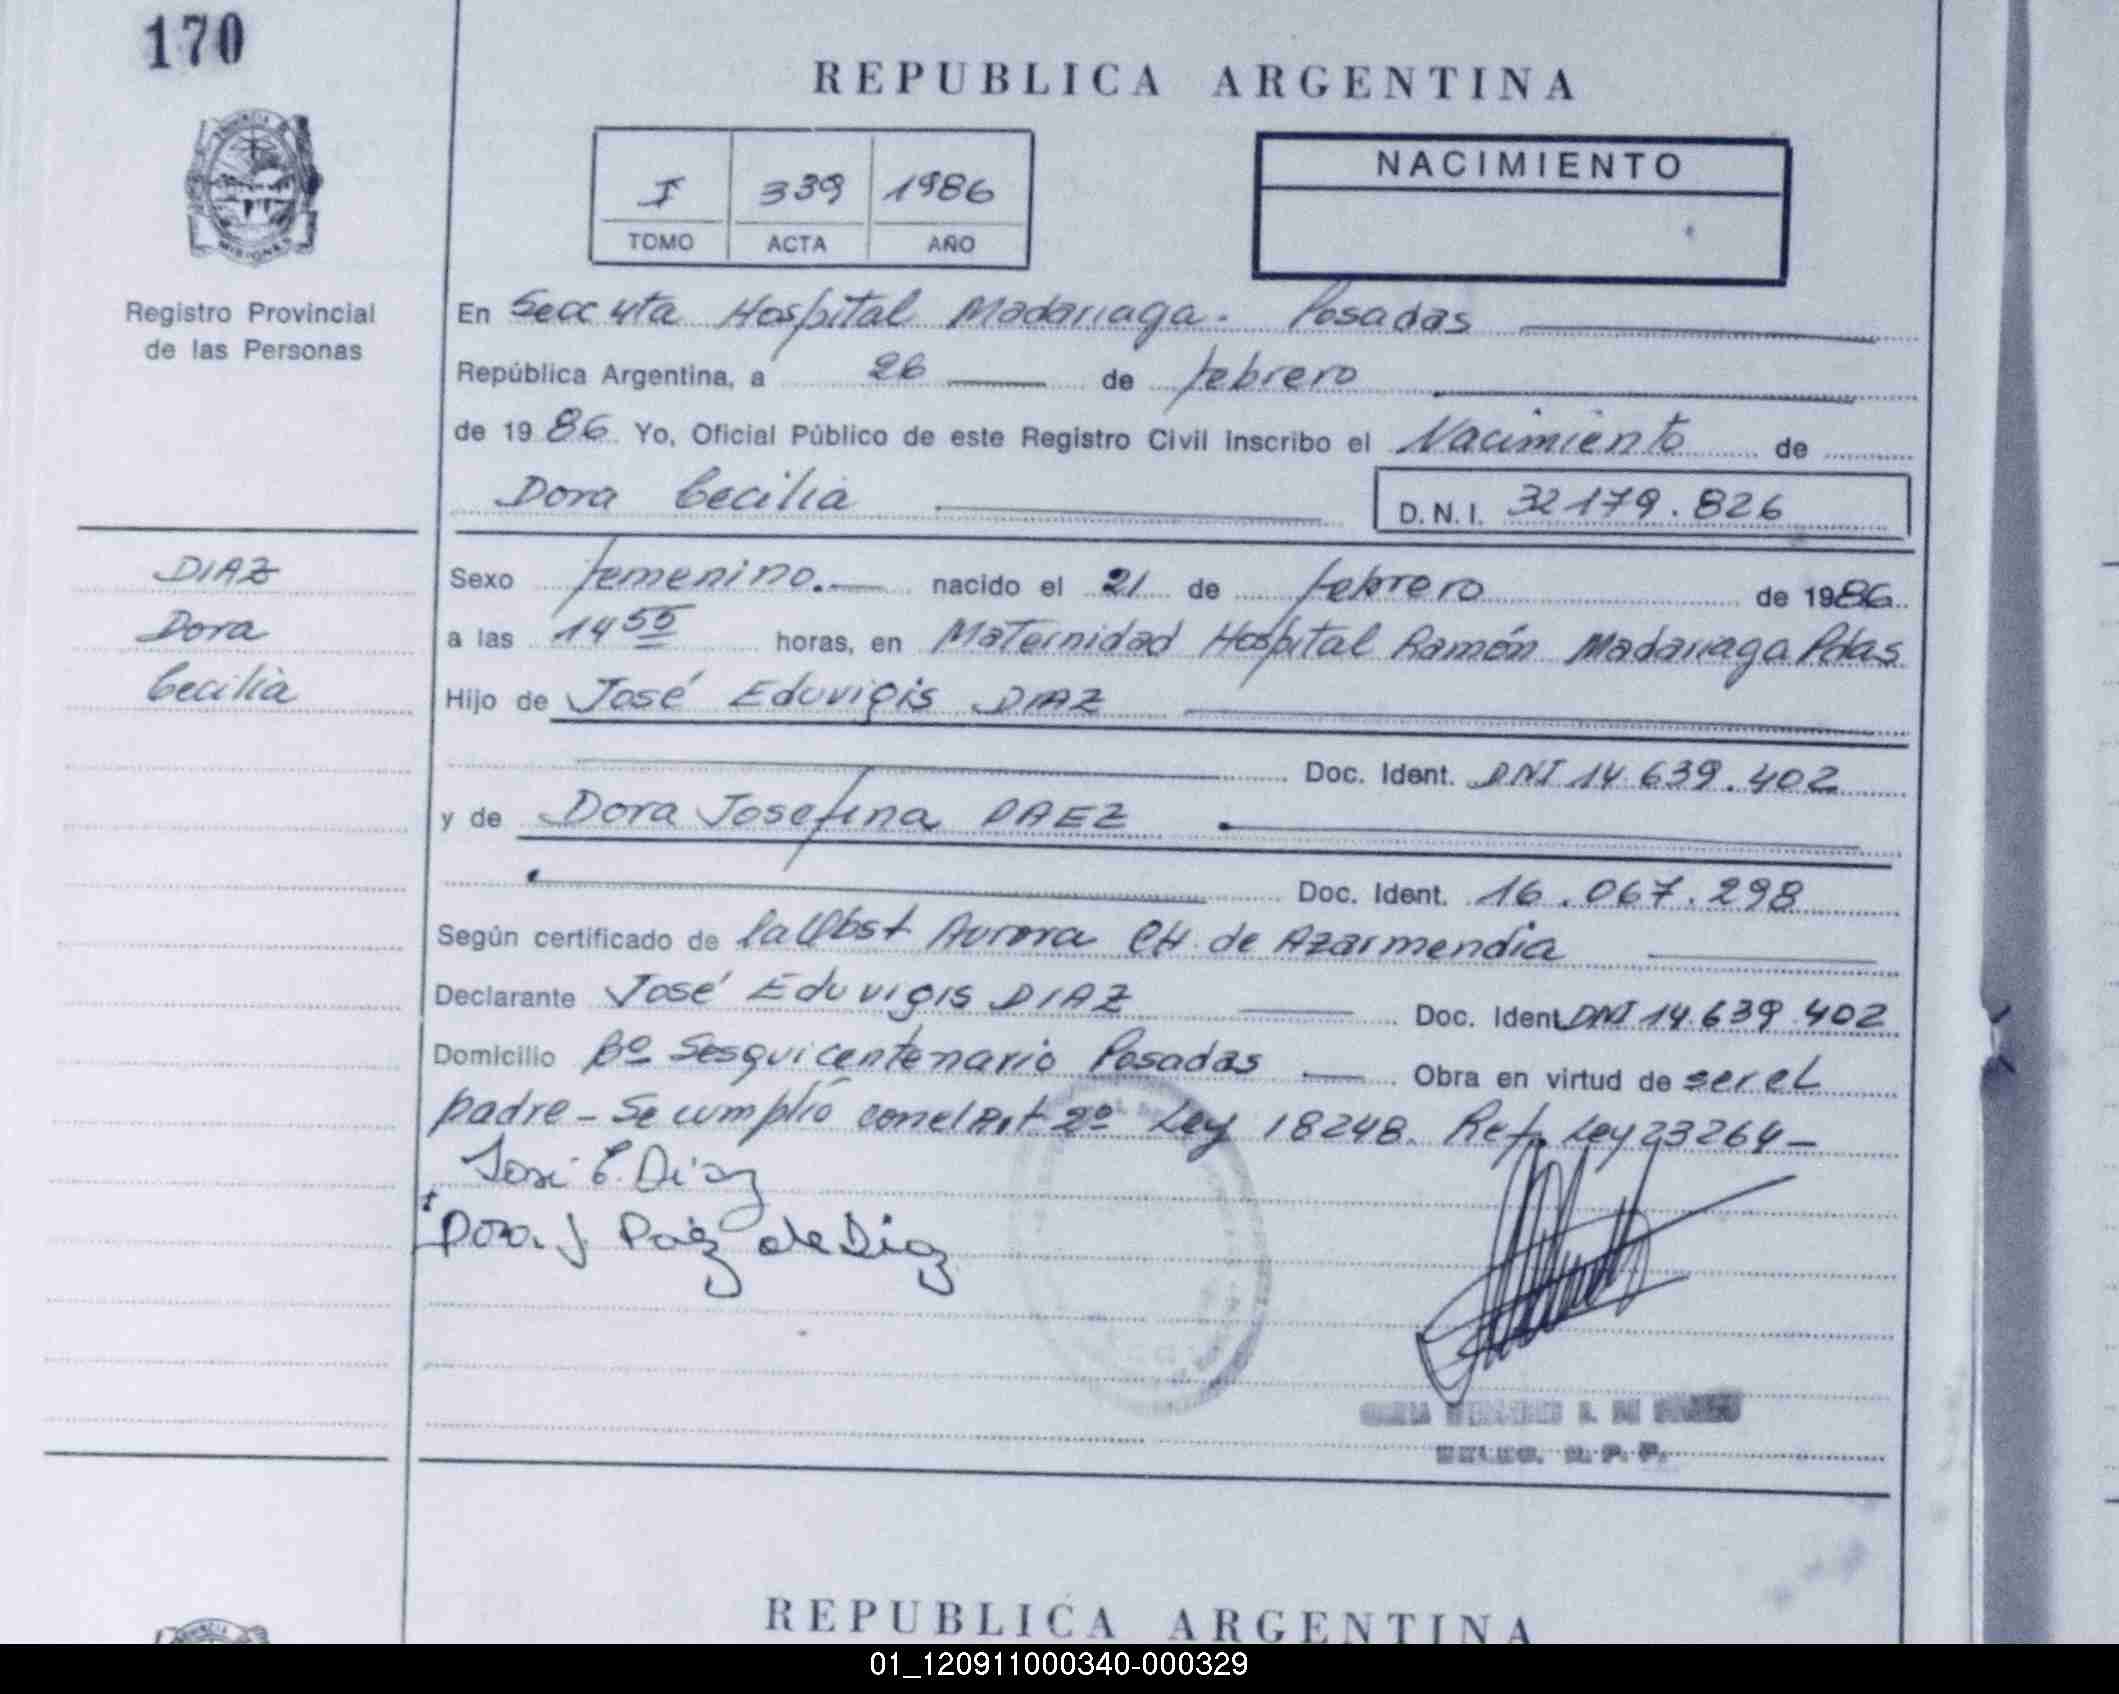 170
REPUBLICA ARGENTINA
PROVINCIA
MISIONES
Registro Provincial
de las Personas
I 339 1986
TOMO ACTA AÑO
NACIMIENTO
En Secc 4ta Hospital Madariaga. Posadas
República Argentina, a 26 de febrero
de 1986 Yo, Oficial Público de este Registro Civil inscribo el Nacimiento de
Dora Cecilia D.N.I. 32179.826
DIAZ
Dora
Cecilia
Sexo femenino. nacido el 21 de febrero de 1986
a las 14 55 horas, en Maternidad Hospital Ramón Madariaga Pdas
Hijo de José Eduvigis DIAZ
Doc. Ident. DNI 14.639.402
y de Dora Josefina PAEZ
Doc. Ident. 16.067.298
Según certificado de la Obst Aurora CH. de Azarmendia
Declarante José Eduvigis DIAZ Doc. Ident DNI 14.639.402
Domicilio Bº Sesquicentenario Posadas Obra en virtud de ser el
padre - Se cumplió con el Art 2º Ley 18248. Ref. Ley 23264 -
José E. Diaz
Dora J Paéz de Diaz
REPUBLICA ARGENTINA
01_120911000340-000329